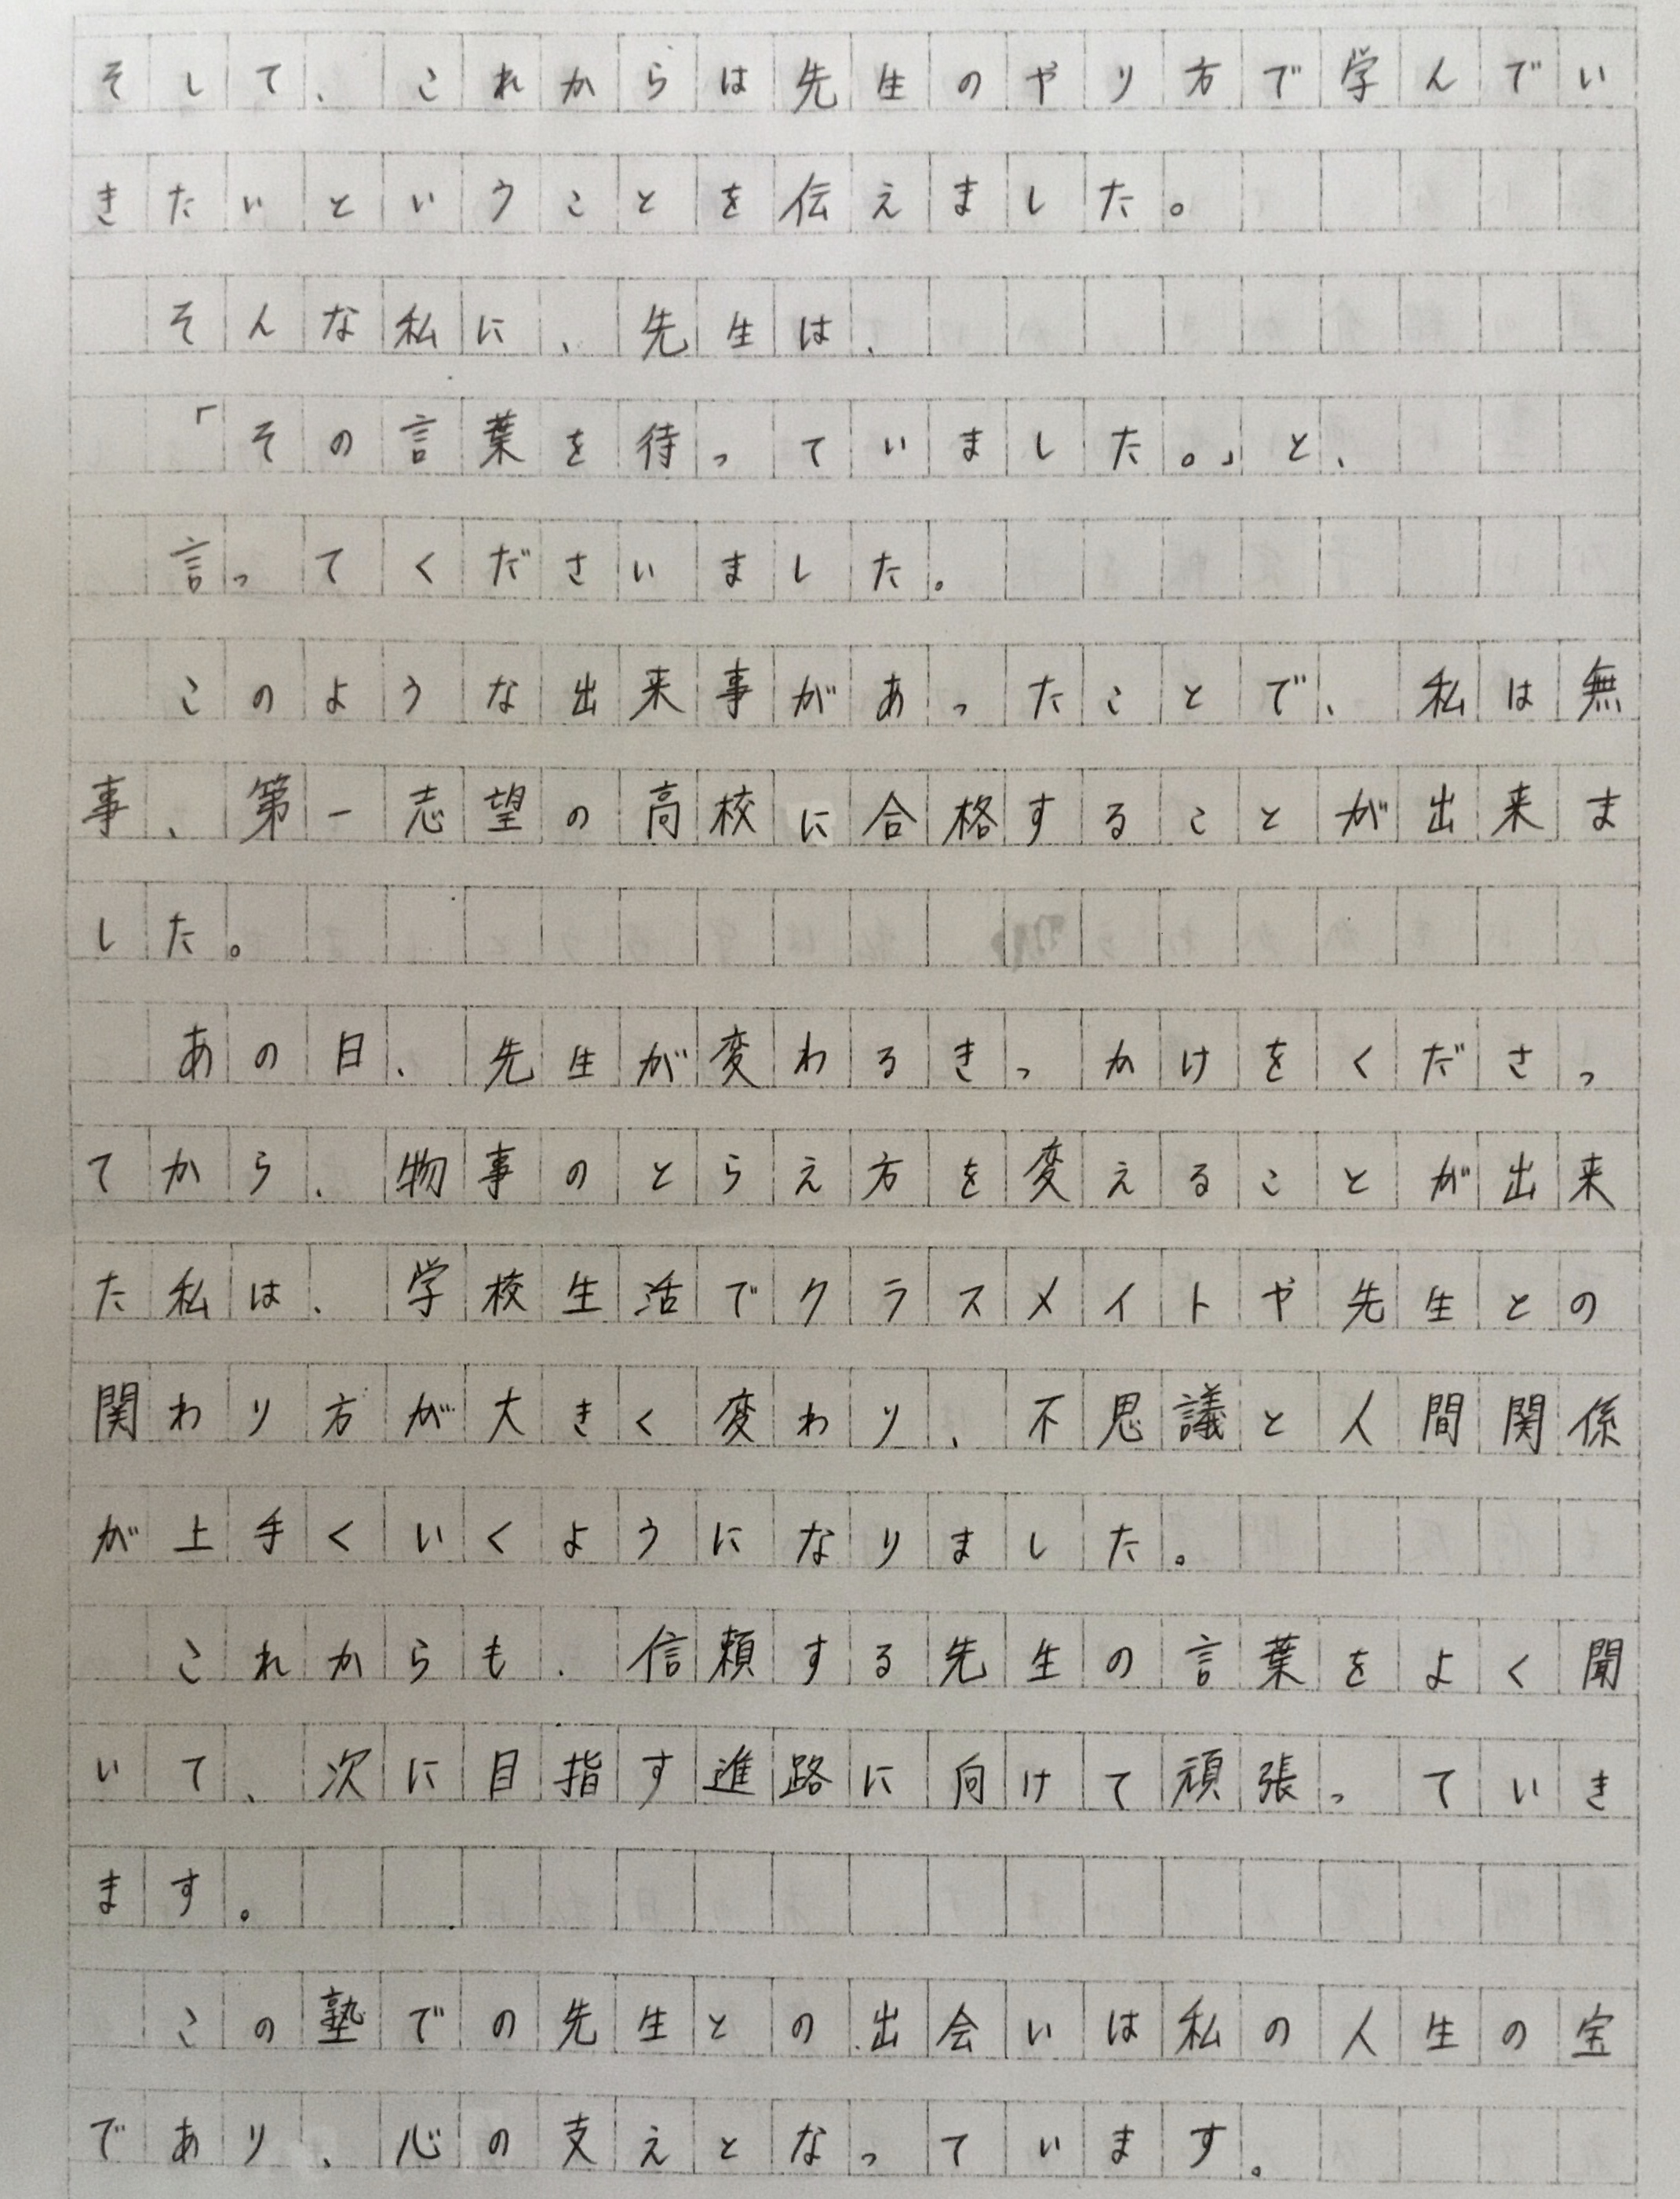 そして、これからは先生のやり方で学んでい
きたいということを伝えました。
そんな私に、先生は、
「その言葉を待っていました。」と、
言ってくださいました。
このような出来事があったことで、私は無
事、第一志望の高校に合格することが出来ま
した。
あの日、先生が変わるきっかけをくださっ
てから、物事のとらえ方を変えることが出来
た私は、学校生活でクラスメイトや先生との
関わり方が大きく変わり、不思議と人間関係
が上手くいくようになりました。
これからも、信頼する先生の言葉をよく聞
いて、次に目指す進路に向けて頑張っていき
ます。
この塾での先生との出会いは私の人生の宝
であり、心の支えとなっています。